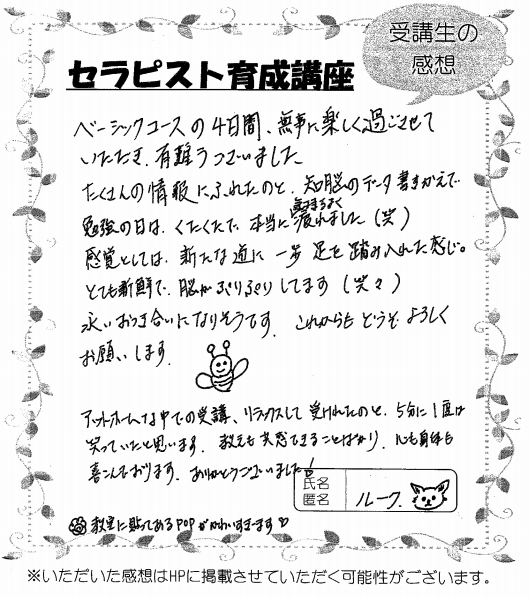 受講生の
感想
セラピスト育成講座
ベーシックコースの4日間、無事に楽しく過ごさせて
いただき、有難うございました
たくさんの情報にふれたのと、知脳のデータ書きかえで
勉強の日は、くたくたで本当に疲れました(笑)
気持ちよく
感覚としては、新たな道に一歩足を踏み入れた感じ。
とても新鮮で、脳がぷりぷりしてます(笑々)
永いおつき合いになりそうです。これからもどうぞよろしく
お願いします。
アットホームな中での受講、リラックスして受けれたのと、5分に1度は
笑っていたと思います。教えも共感できることばかり、心も身体も
喜こんでおります。ありがとうございました!
氏名
匿名
ルーク.
教室に貼ってあるPOPがかわいすぎます♡
※いただいた感想はHPに掲載させていただく可能性がございます。